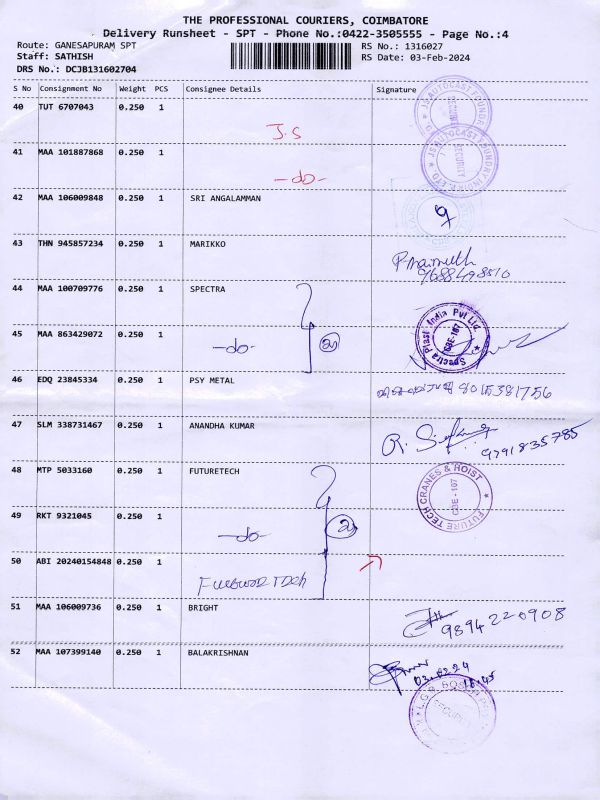 THE PROFESSIONAL COURIERS, COIMBATORE
Delivery Runsheet - SPT - Phone No.:0422-3505555 - Page No.:4
Route: GANESAPURAM SPT
RS No.: 1316027
Staff: SATHISH
RS Date: 03-Feb-2024
DRS No.: DCJB131602704
S No Consignment No Weight PCS Consignee Details Signature
40 TUT 6707043 0.250 1
J.S
41 MAA 101887868 0.250 1
-do-
42 MAA 106009848 0.250 1 SRI ANGALAMMAN
43 THN 945857234 0.250 1 MARIKKO
9688498510
44 MAA 100709776 0.250 1 SPECTRA
Spectra Plast India Pvt Ltd
CBE-107
45 MAA 863429072 0.250 1
-do-
46 EDQ 23845334 0.250 1 PSY METAL
8015381756
47 SLM 338731467 0.250 1 ANANDHA KUMAR
9791835785
48 MTP 5033160 0.250 1 FUTURETECH
FUTURE TECH CRANES & HOIST
CBE - 107
49 RKT 9321045 0.250 1
-do-
50 ABI 20240154848 0.250 1
51 MAA 106009736 0.250 1 BRIGHT
9894220908
52 MAA 107399140 0.250 1 BALAKRISHNAN
16.45